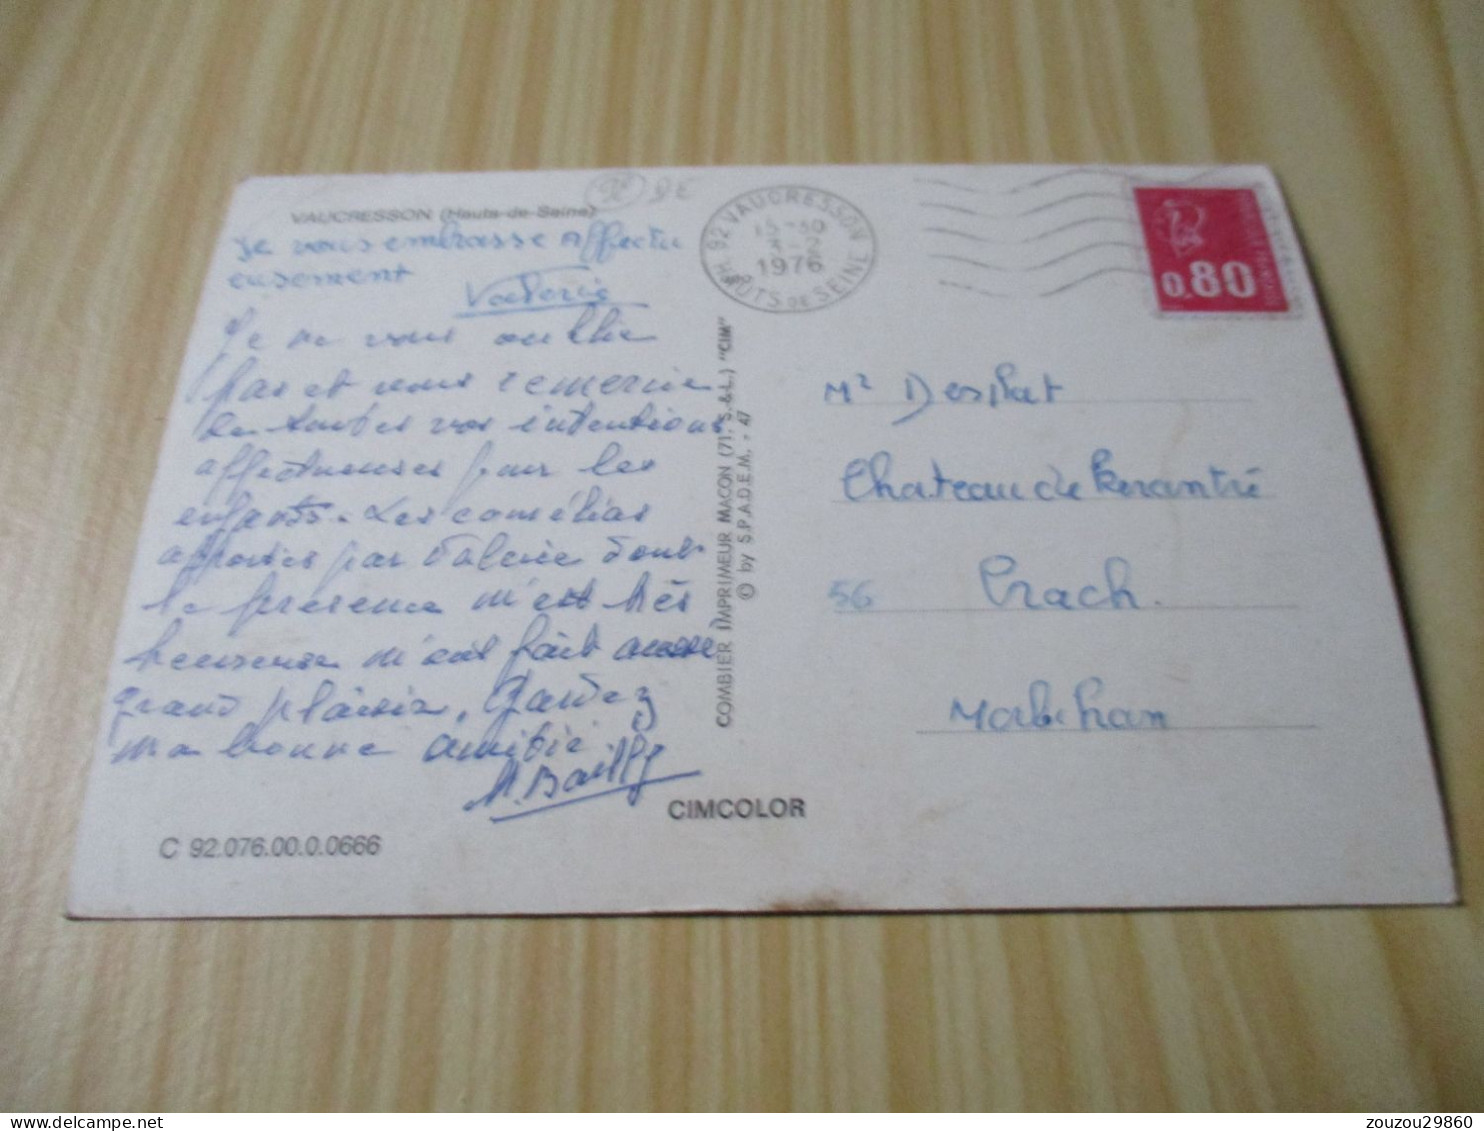 VAUCRESSON (Hauts-de-Seine)
DE
Je vous embrasse affectu
eusement
Valerie
Je ne vous oublie
pas et vous remercie
de toutes vos intentions
affectueuses pour les
enfants. Les camélias
apportés par Valerie dont
la présence m'est très
heureuse m'ont fait
grand plaisir. Gardez
ma bonne amitié
M. Bailly
C 92.076.00.0.0666
CIMCOLOR
COMBIER IMPRIMEUR MACON (71. S.&L.) "CIM"
© by S.P.A.D.E.M. - 47
92 VAUCRESSON
15-30
3-2
1976
HAUTS DE SEINE
0,80
Mr Desplat
Chateau de Kerantré
56 Crach.
Morbihan
zouzou29860